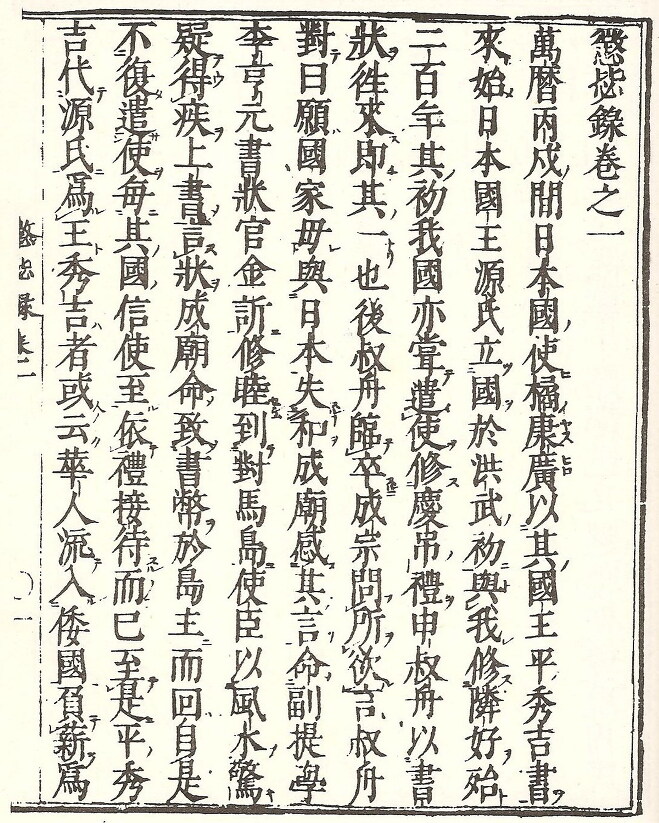 懲毖錄卷之一
萬曆丙戌間日本國使橘康廣以其國王平秀吉書
來始日本國王源氏立國於洪武初與我修隣好始
二百年其初我國亦嘗遣使修慶吊禮申叔舟以書
狀徃來即其一也後叔舟臨卒成宗問所欲言叔舟
對曰願國家毋與日本失和成廟感其言命副提學
李亨元書狀官金訢修睦到對馬島使臣以風水驚
疑得疾上書言狀成廟命致書幣於島主而回自是
不復遣使每其國信使至依禮接待而已至是平秀
吉代源氏爲王秀吉者或云華人流入倭國負薪爲